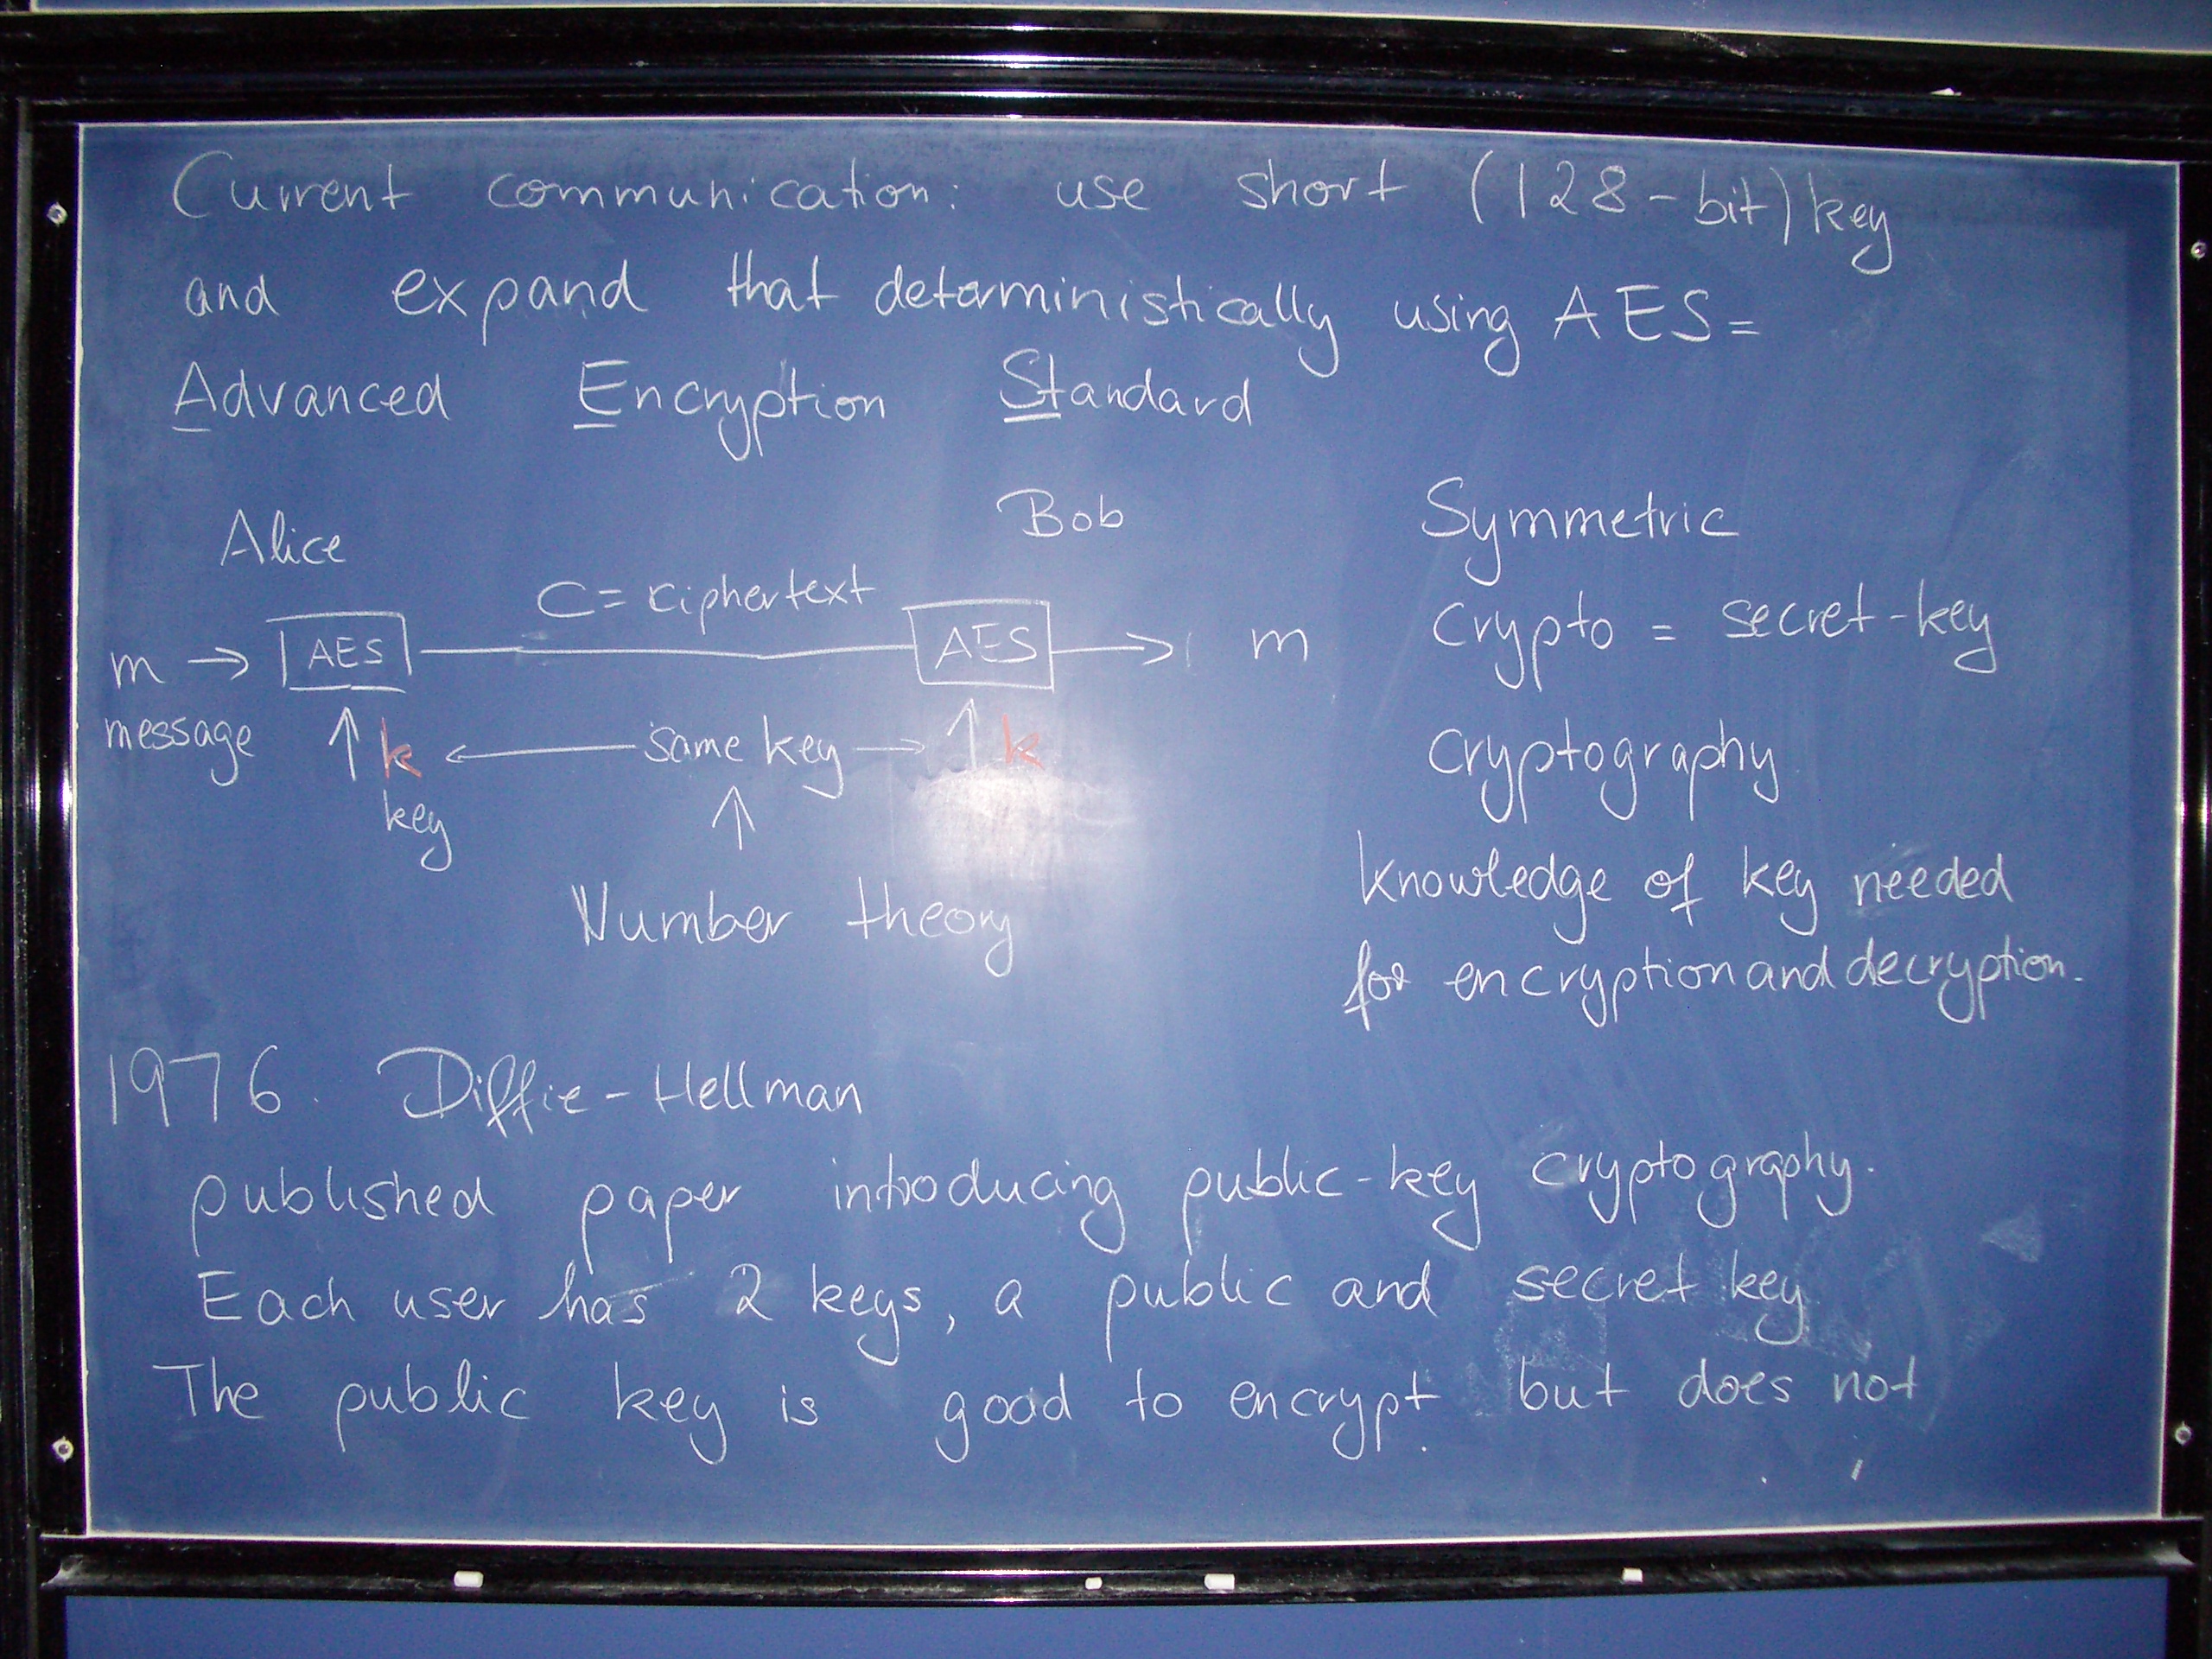 Current communication: use short (128-bit) key
and expand that deterministically using AES=
Advanced Encryption Standard
Alice
Bob
C = ciphertext
m → AES
AES → m
message
k ← same key → k
key
↑
Number theory
Symmetric
Crypto = secret-key
Cryptography
knowledge of key needed
for encryption and decryption.
1976. Diffie-Hellman
published paper introducing public-key cryptography.
Each user has 2 keys, a public and secret key
The public key is good to encrypt but does not